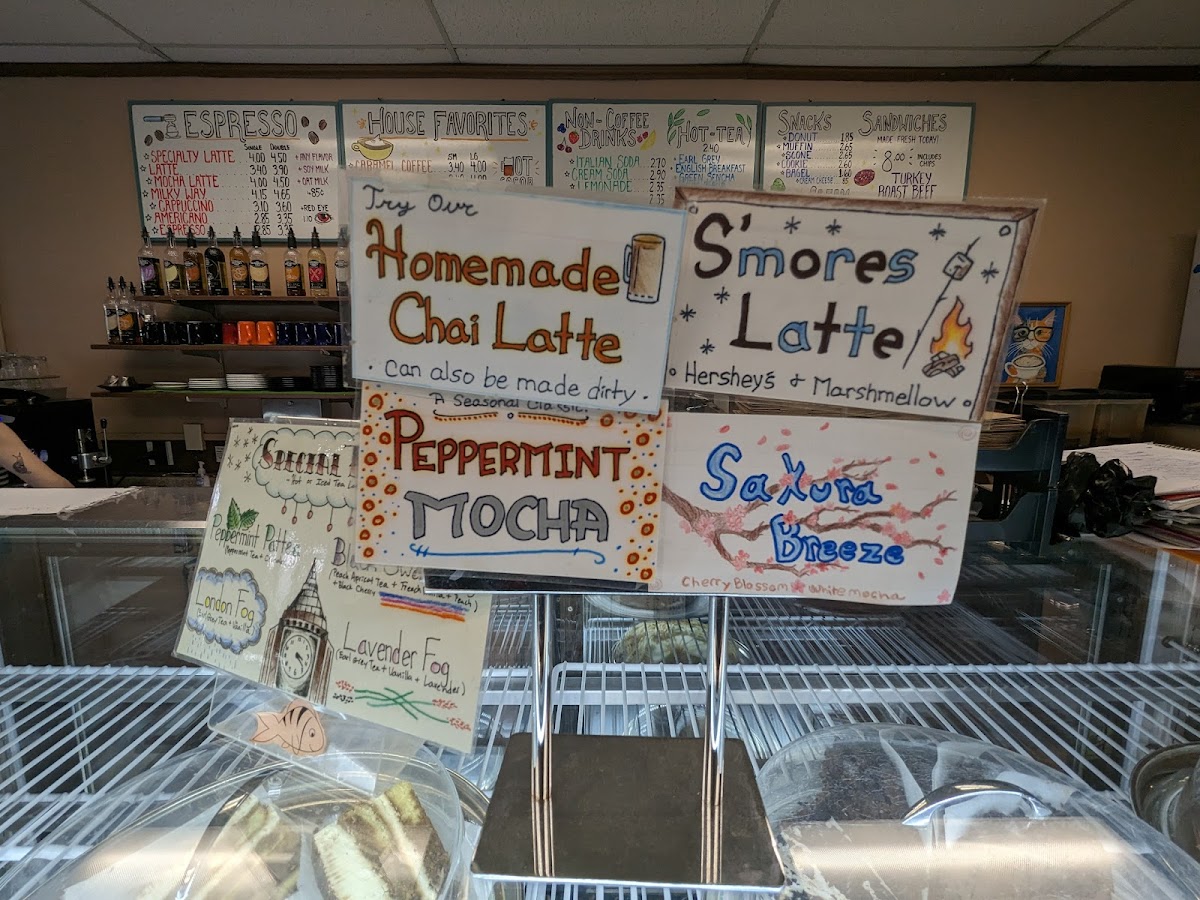 ESPRESSO
SINGLE DOUBLE
SPECIALTY LATTE 4.00 4.50 + ANY FLAVOR
LATTE 3.40 3.90 + SOY MILK
MOCHA LATTE 4.00 4.50 + OAT MILK
MILKY WAY 4.15 4.65 85¢
CAPPUCCINO 3.10 3.60 + RED EYE
AMERICANO 2.85 3.35 1.10
ESPRESSO 2.85 3.35
HOUSE FAVORITES
SM LG
CARAMEL COFFEE 3.40 4.00
HOT
COCOA
NON-COFFEE
DRINKS
ITALIAN SODA 2.70
CREAM SODA 2.90
LEMONADE 2.35
HOT-TEA
2.40
EARL GREY
ENGLISH BREAKFAST
GREEN SENCHA
SNACKS
DONUT 1.85
MUFFIN 2.65
SCONE 2.65
COOKIE 2.60
BAGEL 1.60
+ CREAM CHEESE
SANDWICHES
MADE FRESH TODAY!
8.00 - INCLUDES
CHIPS
TURKEY
ROAST BEEF
Try Our
Homemade
Chai Latte
• Can also be made dirty •
S'mores
Latte
• Hershey's & Marshmellow •
A Seasonal Classic!
PEPPERMINT
MOCHA
Sakura
Breeze
Cherry Blossom + White mocha
Peppermint Pattee
London Fog
(Peach Apricot Tea +
+ Black Cherry
Lavender Fog
(Earl Grey Tea + Vanilla + Lavender)